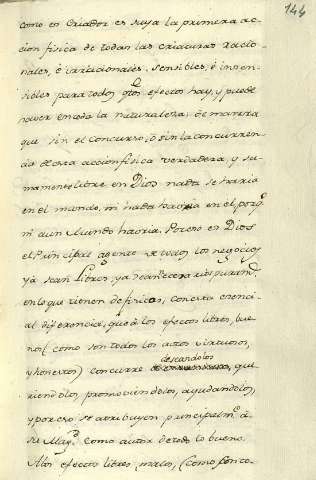 144
como es Criador es suya la primera ac-
cion fisica de todas las criaturas racio-
nales, ò irracionales. sensibles, ò insen-
sibles para todos qtos efectos hay, y puede
haver en toda la naturaleza; de manera
que sin el concurso, ò sin la concurren-
cia de esta accion fisica verdadera, y su-
mamente libre en Dios nada se haria
en el mundo, ni nada havria en el
ni aun Mundo havria. Por eso es Dios
el Principal agente de todos los negocios
ya sean Libres, ya necesarios puramte
en lo que tienen de fisicos, con esta esenci-
al diferencia, que à los efectos libres, bue-
nos (como son todos los actos virtuosos,
deseandolos
y honestos) concurre que
riendolos, promoviendolos, ayudandolos,
y por eso se atribuyen principalmte à
su Magd como autor de todo lo bueno.
A los efectos libres, malos, (como son to-